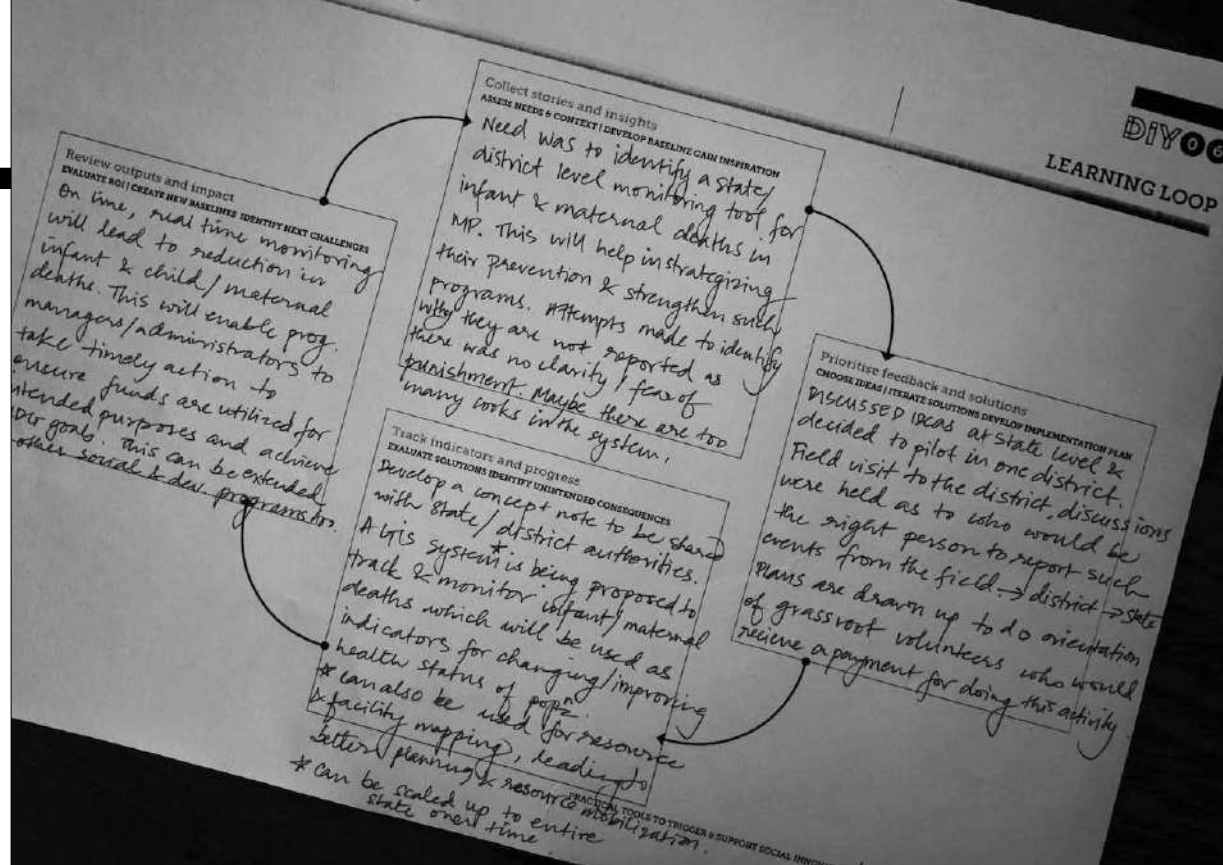 DIY06
LEARNING LOOP
Collect stories and insights
ASSESS NEEDS & CONTEXT | DEVELOP BASELINE GAIN INSPIRATION
Need was to identify a state/
district level monitoring tool for
infant & maternal deaths in
MP. This will help in strategizing
their prevention & strengthen such
programs. Attempts made to identify
why they are not reported as
there was no clarity / fear of
punishment. Maybe there are too
many cooks in the system.
Prioritise feedback and solutions
CHOOSE IDEAS | ITERATE SOLUTIONS DEVELOP IMPLEMENTATION PLAN
DISCUSSED IDEAS at State level &
decided to pilot in one district.
Field visit to the district, discussions
were held as to who would be
the right person to report such
events from the field → district → state
Plans are drawn up to do orientation
of grassroot volunteers who would
recieve a payment for doing this activity
Track indicators and progress
EVALUATE SOLUTIONS IDENTIFY UNINTENDED CONSEQUENCES
Develop a concept note to be shared
with State/district authorities.
A GIS system* is being proposed to
track & monitor infant/maternal
deaths which will be used as
indicators for changing/improving
health status of popn.
* can also be used for resource
& facility mapping, leading to
better planning & resource mobilization.
* can be scaled up to entire
state over time.
Review outputs and impact
EVALUATE ROI | CREATE NEW BASELINES IDENTIFY NEXT CHALLENGES
On time, real time monitoring
will lead to reduction in
infant & child/maternal
deaths. This will enable prog.
managers/administrators to
take timely action to
ensure funds are utilized for
intended purposes and achieve
goals. This can be extended
other social & dev. programs too.
PRACTICAL TOOLS TO TRIGGER & SUPPORT SOCIAL